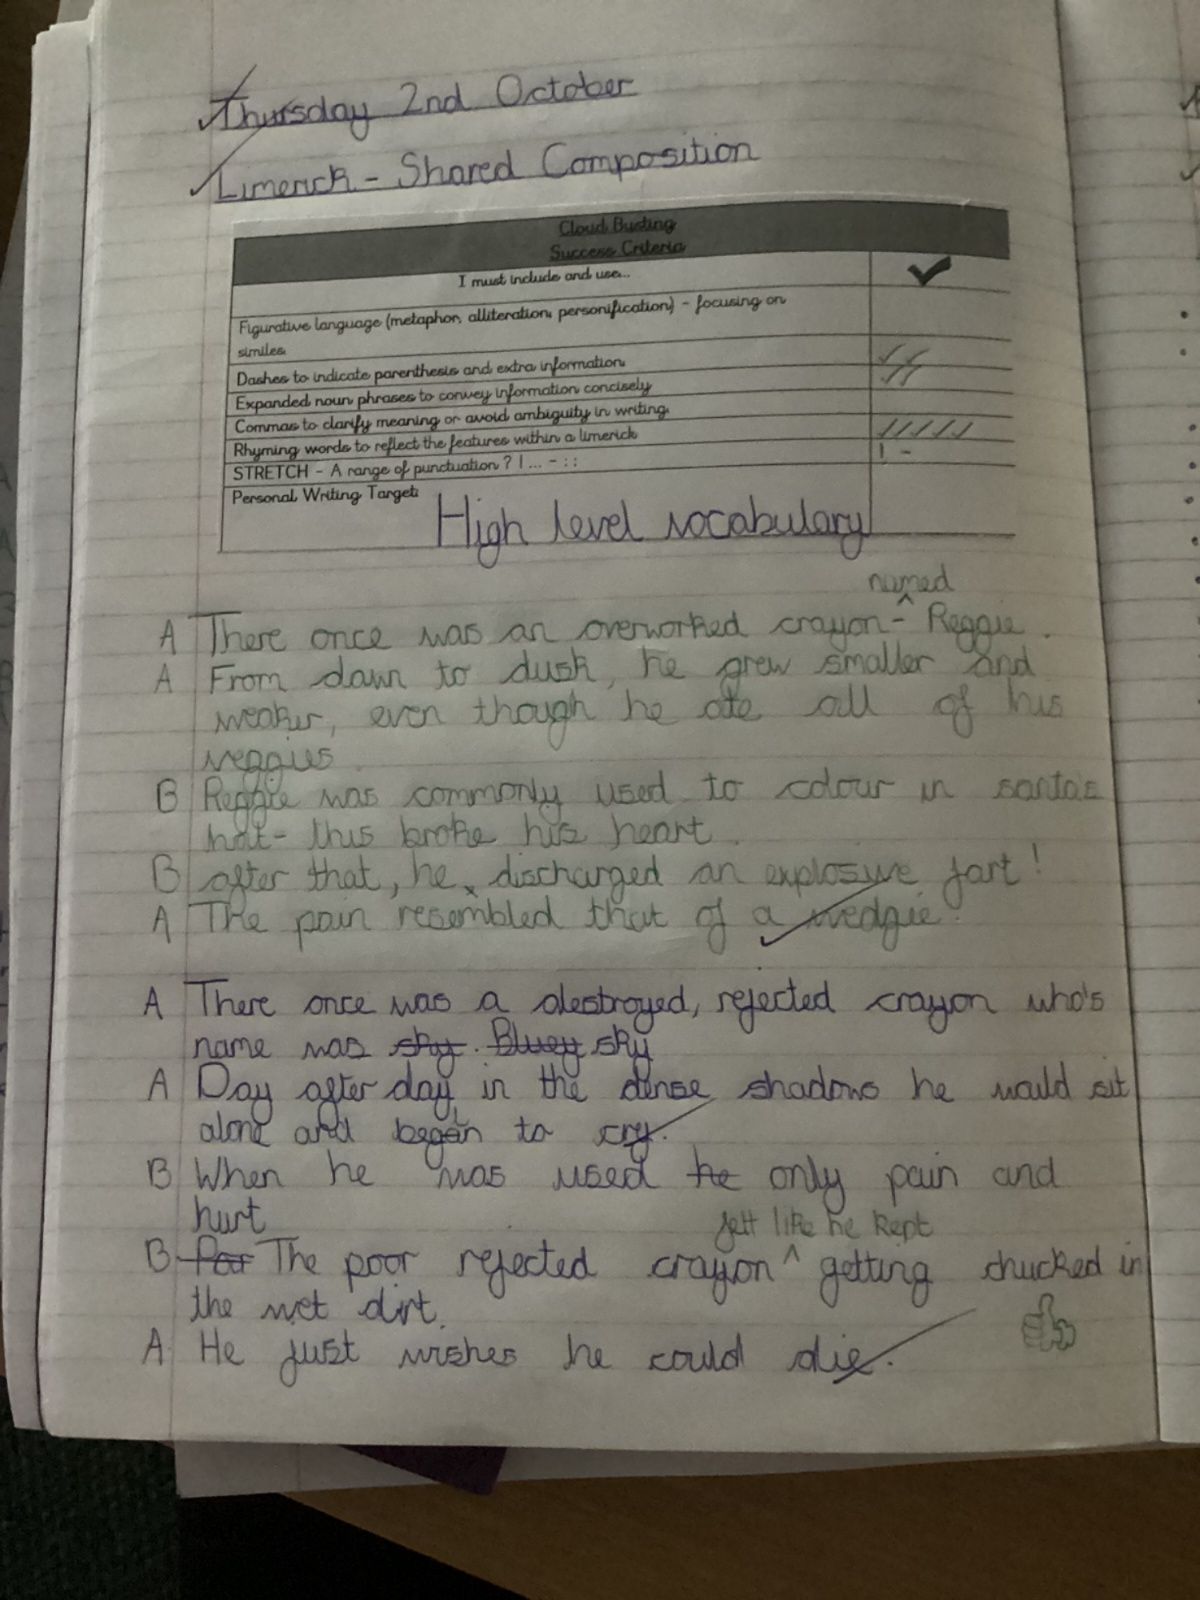 Thursday 2nd October
Limerick - Shared Composition
Cloud Busting
Success Criteria
I must include and use...
Figurative language (metaphor, alliteration, personification) - focusing on
similes
Dashes to indicate parenthesis and extra information
Expanded noun phrases to convey information concisely
Commas to clarify meaning or avoid ambiguity in writing
Rhyming words to reflect the features within a limerick
STRETCH - A range of punctuation ? ! ... - : ;
! -
Personal Writing Target:
High level vocabulary
named
A There once was an overworked crayon - ^ Reggie.
A From dawn to dusk, he grew smaller and
weaker, even though he ate all of his
veggies.
B Reggie was commonly used to colour in santa's
hat - this broke his heart.
B after that, he discharged an explosive fart!
A The pain resembled that of a wedgie.
A There once was a destroyed, rejected crayon who's
name was sky. Bluey sky
A Day after day, in the dense shadows he would sit
alone and began to cry.
B When he was used he only pain and
hurt
felt like he kept
B Por The poor rejected crayon ^ getting chucked in
the wet dirt.
A He just wishes he could die.